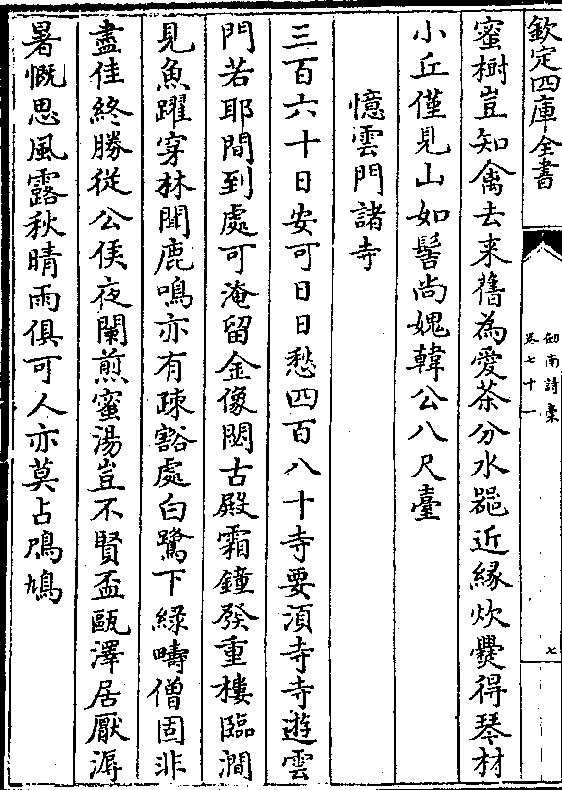 欽定四庫全書
劍南詩稾
卷七十一
七
蜜樹豈知禽去来舊為愛茶分水器近縁炊㸑得琴材
小丘僅見山如髻尚媿韓公八尺臺
憶雲門諸寺
三百六十日安可日日愁四百八十寺要湏寺寺遊雲
門若耶間到處可淹留金像閟古殿霜鐘發重樓臨澗
見魚躍穿林聞鹿鳴亦有疎豁處白鷺下緑疇僧固非
盡佳終勝從公侯夜闌煎蜜湯豈不賢盃甌澤居厭潺
暑慨思風露秋晴雨俱可人亦莫占鳲鳩